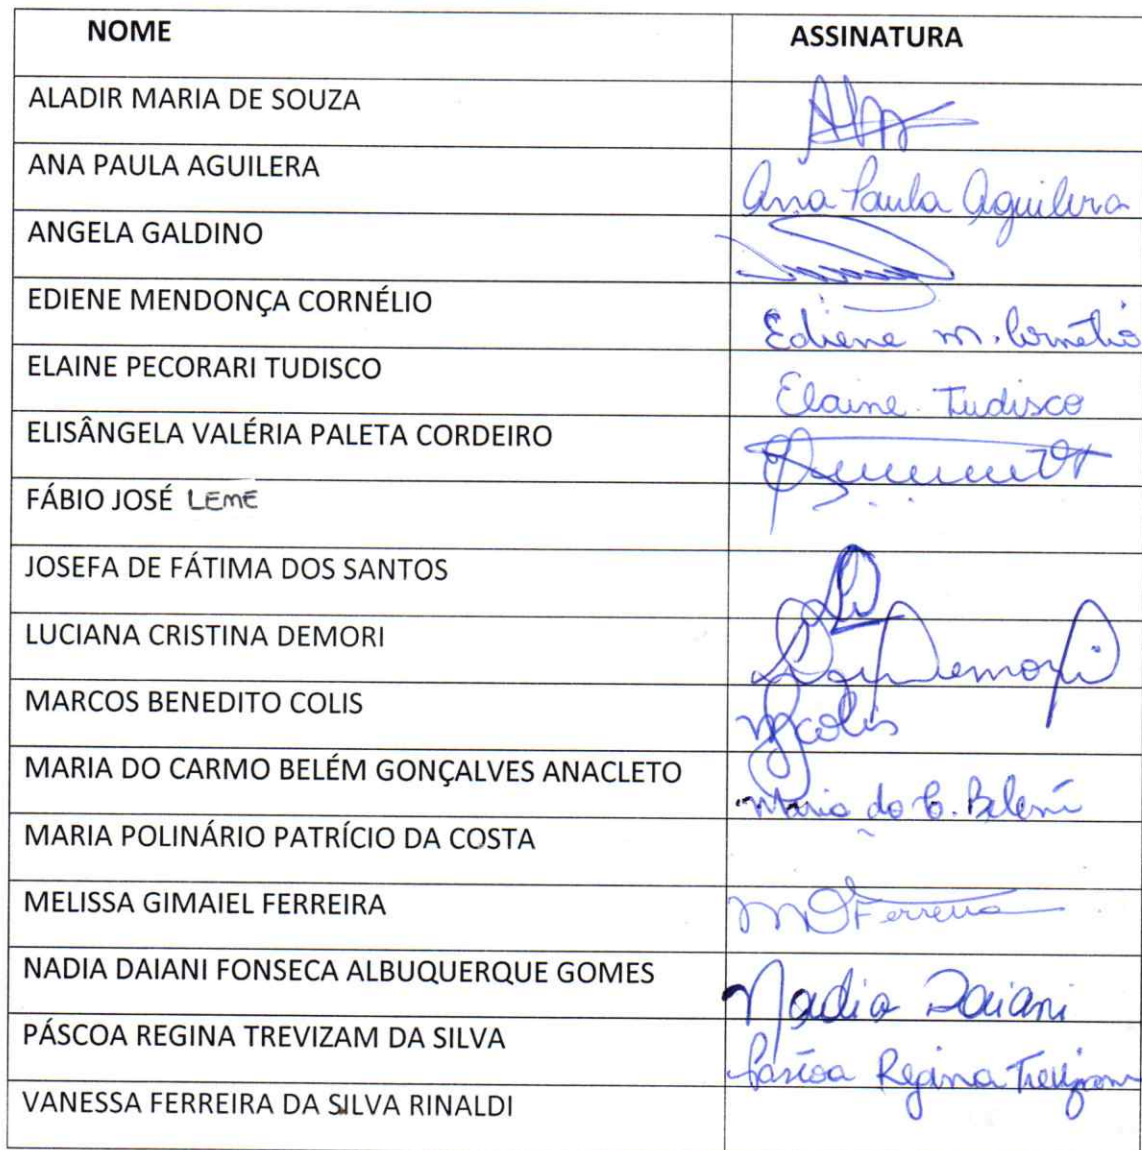 NOME ASSINATURA
ALADIR MARIA DE SOUZA
ANA PAULA AGUILERA Ana Paula Aguilera
ANGELA GALDINO
EDIENE MENDONÇA CORNÉLIO Ediene M. Cornélio
ELAINE PECORARI TUDISCO Elaine Tudisco
ELISÂNGELA VALÉRIA PALETA CORDEIRO
FÁBIO JOSÉ LEME
JOSEFA DE FÁTIMA DOS SANTOS
LUCIANA CRISTINA DEMORI Demori
MARCOS BENEDITO COLIS Colis
MARIA DO CARMO BELÉM GONÇALVES ANACLETO Maria do C. Belém
MARIA POLINÁRIO PATRÍCIO DA COSTA
MELISSA GIMAIEL FERREIRA Ferreira
NADIA DAIANI FONSECA ALBUQUERQUE GOMES Nadia Daiani
PÁSCOA REGINA TREVIZAM DA SILVA Páscoa Regina Trevizam
VANESSA FERREIRA DA SILVA RINALDI